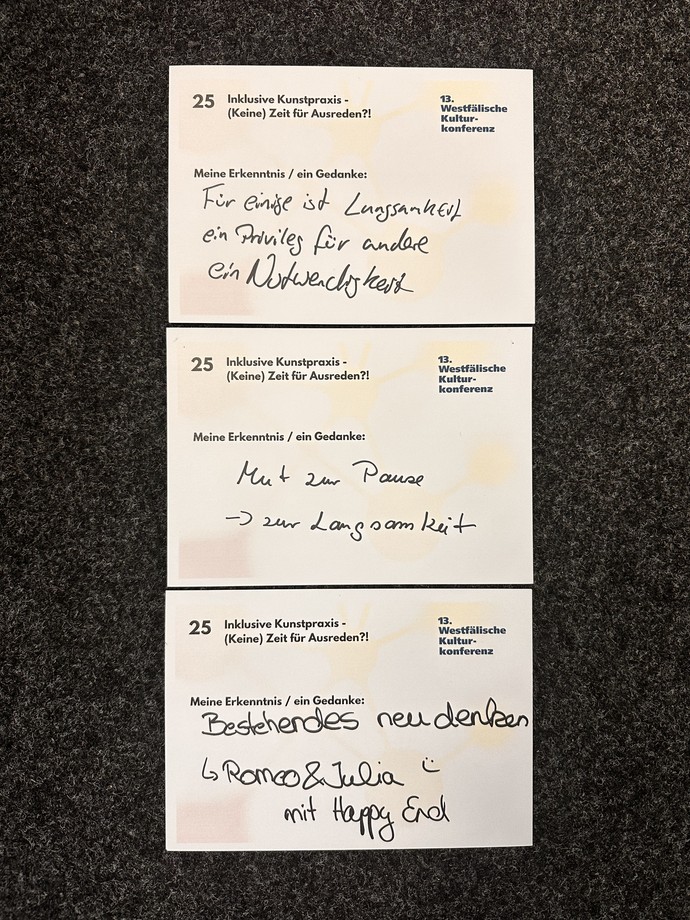 25 Inklusive Kunstpraxis -
(Keine) Zeit für Ausreden?!
13.
Westfälische
Kultur-
konferenz
Meine Erkenntnis / ein Gedanke:
Für einige ist Langsamkeit
ein Privileg für andere
ein Notwendigkeit
25 Inklusive Kunstpraxis -
(Keine) Zeit für Ausreden?!
13.
Westfälische
Kultur-
konferenz
Meine Erkenntnis / ein Gedanke:
Mut zur Pause
→ zur Langsamkeit
25 Inklusive Kunstpraxis -
(Keine) Zeit für Ausreden?!
13.
Westfälische
Kultur-
konferenz
Meine Erkenntnis / ein Gedanke:
Bestehendes neu denken
↳ Romeo & Julia :)
mit Happy End